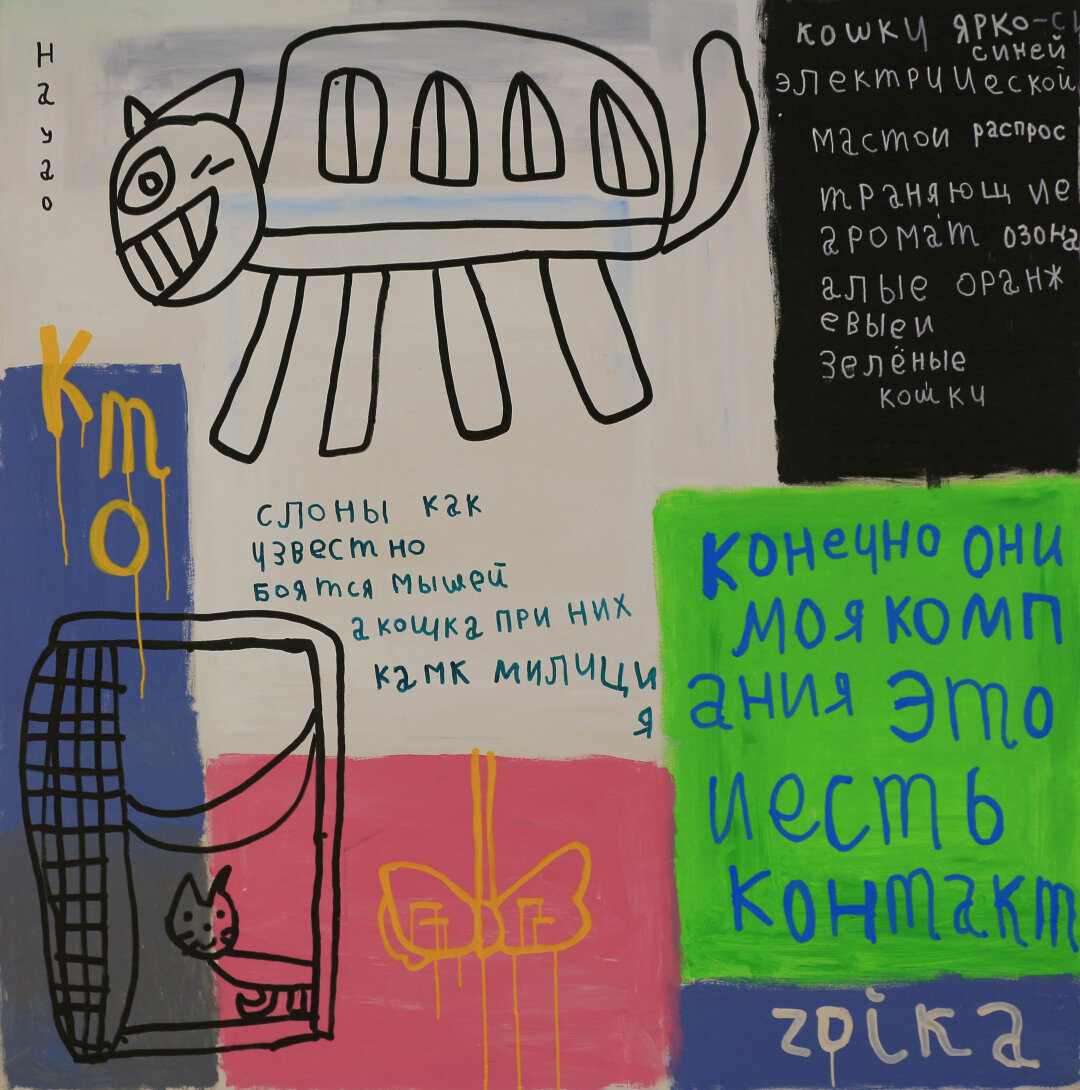 Hayao
кошки ярко-си
синей
электрической
мастои распрос
траняющие
аромат озона
алые оранж
евыеи
зелёные
кошки
Кто
слоны как
известно
боятся мышей
а кошка при них
камк милици
я
конечно они
моя комп
ания это
и есть
контакт
zoika